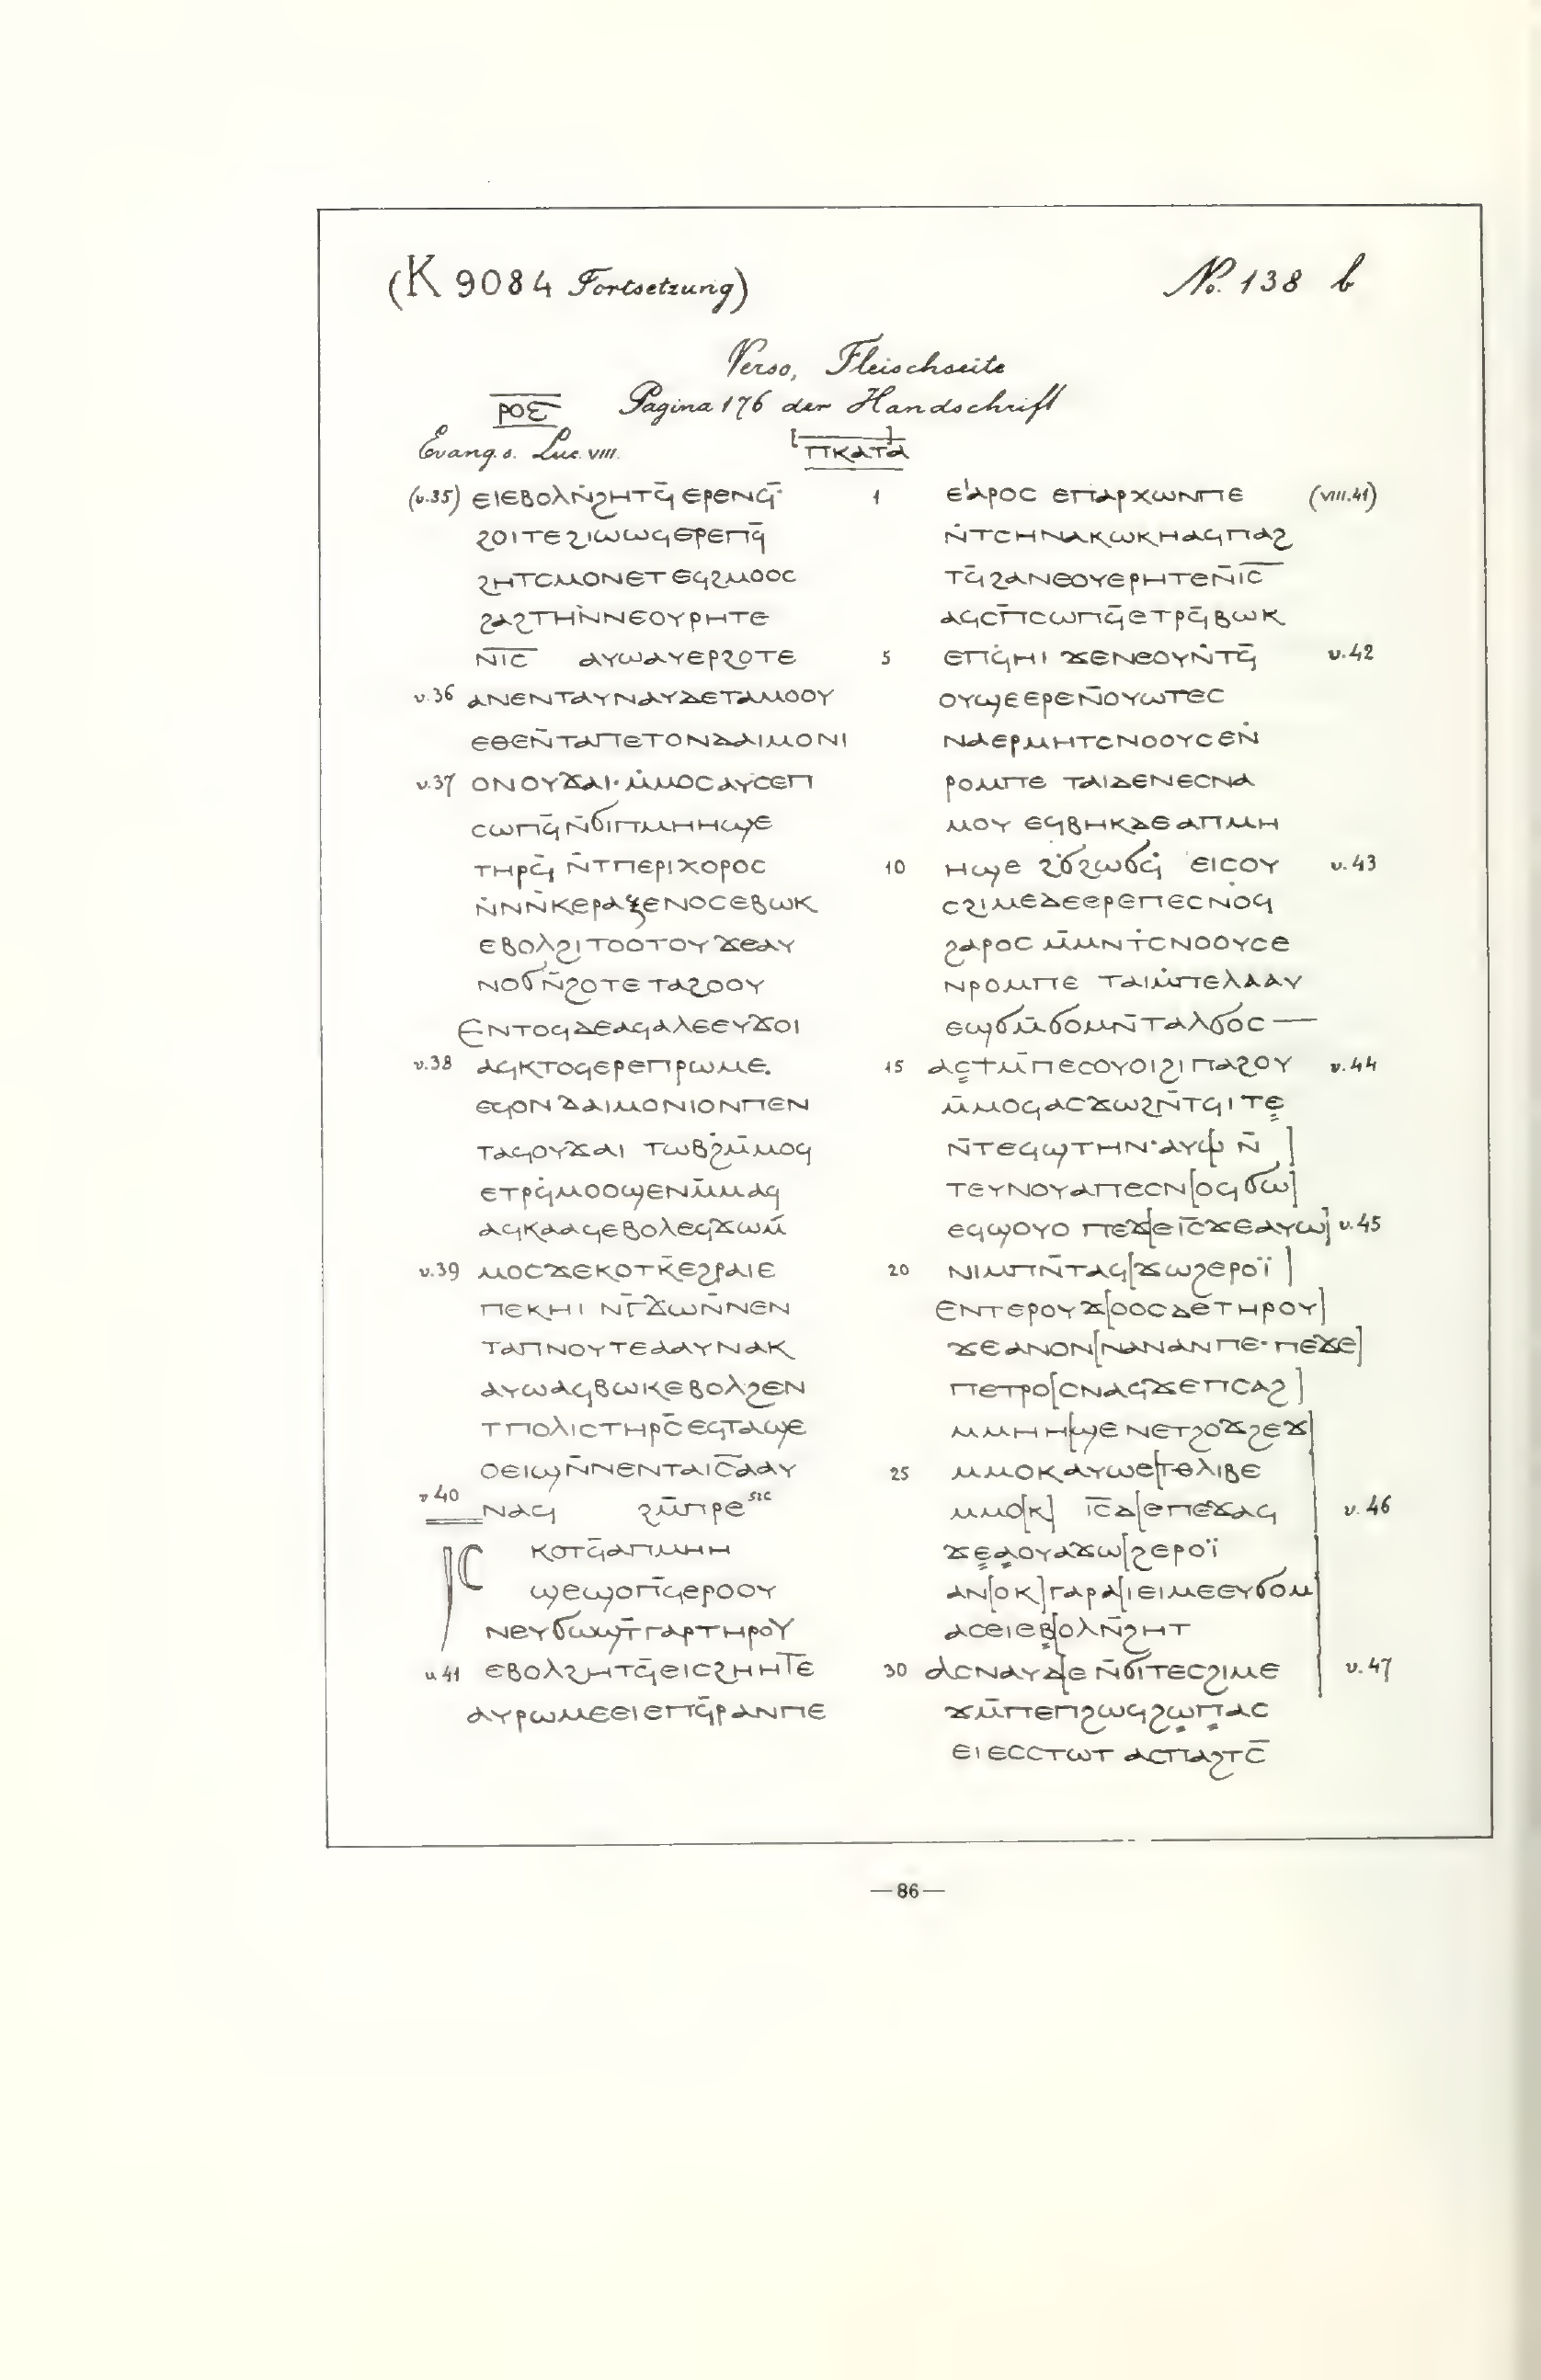 (K 9084 Fortsetzung)
No. 138 b
Verso, Fleischseite
ⲣⲟⲋ Pagina 176 der Handschrift
Evang. s. Luc. VIII. [ⲡⲕⲁⲧⲁ]
(v.35) ⲉⲓⲉⲃⲟⲗⲛ̇ϩⲏⲧϥ̄ ⲉⲣⲉⲛϥ̄·
ϩⲟⲓⲧⲉϩⲓⲱⲱϥⲉⲣⲉⲡϥ̄
ϩⲏⲧⲥⲙⲟⲛⲉⲧⲉϥϩⲙⲟⲟⲥ
ϩⲁϩⲧⲏⲛ̇ⲛⲉⲟⲩⲣⲏⲧⲉ
ⲛⲓ̅ⲥ̅ ⲁⲩⲱⲁⲩⲉⲣϩⲟⲧⲉ
v.36 ⲁⲛⲉⲛⲧⲁⲩⲛⲁⲩⲇⲉⲧⲁⲙⲟⲟⲩ
ⲉⲑⲉⲛ̄ⲧⲁⲡⲉⲧⲟⲛⲇⲁⲓⲙⲟⲛⲓ
v.37 ⲟⲛⲟⲩϫⲁⲓ· ⲙ̇ⲙⲟⲥⲁⲩⲥⲉⲡ
ⲥⲱⲡϥ̄ⲛ̄ϭⲓⲡⲙⲏⲏϣⲉ
ⲧⲏⲣϥ̄ ⲛ̄ⲧⲡⲉⲣⲓⲭⲟⲣⲟⲥ
ⲛ̇ⲛⲛ̇ⲕⲉⲣⲁⲝⲉⲛⲟⲥⲉⲃⲱⲕ
ⲉⲃⲟⲗϩⲓⲧⲟⲟⲧⲟⲩϫⲉⲁⲩ
ⲛⲟϭⲛ̄ϩⲟⲧⲉⲧⲁϩⲟⲟⲩ
ⲉⲛⲧⲟϥⲇⲉⲁϥⲁⲗⲉⲉⲩϫⲟⲓ
v.38 ⲁϥⲕⲧⲟϥⲉⲣⲉⲡⲣⲱⲙⲉ.
ⲉϥⲟⲛⲇⲁⲓⲙⲟⲛⲓⲟⲛⲡⲉⲛ
ⲧⲁϥⲟⲩϫⲁⲓ ⲧⲱⲃϩ̇ⲙ̄ⲙⲟϥ
ⲉⲧⲣϥ̇ⲙⲟⲟϣⲉⲛⲙ̄ⲙⲁϥ
ⲁϥⲕⲁⲁϥⲉⲃⲟⲗⲉϥϫⲱⲙ̄
v.39 ⲙⲟⲥϫⲉⲕⲟⲧⲕ̄ⲉϩⲣⲁⲓⲉ
ⲡⲉⲕⲏⲓ ⲛⲅ̄ϫⲱⲛ̄ⲛⲉⲛ
ⲧⲁⲡⲛⲟⲩⲧⲉⲁⲁⲩⲛⲁⲕ
ⲁⲩⲱⲁϥⲃⲱⲕⲉⲃⲟⲗϩⲉⲛ
ⲧⲡⲟⲗⲓⲥⲧⲏⲣⲥ̄ⲉϥⲧⲁϣⲉ
ⲟⲉⲓϣⲛ̄ⲛⲉⲛⲧⲁⲓ̅ⲥ̅ⲁⲁⲩ
v.40 ⲛⲁϥ ϩⲙ̄ⲡⲣⲉ sic
ⲕⲟⲧϥ̄ⲁⲡⲙⲏⲏ
ϣⲉϣⲟⲡϥ̄ⲉⲣⲟⲟⲩ
ⲛⲉⲩϭⲱϣⲧ̄ⲅⲁⲣⲧⲏⲣⲟⲩ
v.41 ⲉⲃⲟⲗϩⲏⲧϥ̄ⲉⲓⲥϩⲏⲏⲧⲉ̄
ⲁⲩⲣⲱⲙⲉⲉⲓⲉⲡϥ̄ⲣⲁⲛⲡⲉ
1 ⲉⲓ̓ⲁⲣⲟⲥ ⲉⲡⲁⲣⲭⲱⲛⲡⲉ (VIII.41)
ⲛ̇ⲧⲥⲏⲛⲁⲕⲱⲕⲏⲁϥⲡⲁϩ
ⲧϥ̄ϩⲁⲛⲉⲟⲩⲉⲣⲏⲧⲉⲛ̄ⲓ̅ⲥ̅
ⲁϥⲥⲡ̄ⲥⲱⲡϥ̄ⲉⲧⲣϥ̄ⲃⲱⲕ
5 ⲉⲡϥ̇ⲏⲓ ϫⲉⲛⲉⲟⲩⲛ̇ⲧϥ̄ v.42
ⲟⲩϣⲉⲉⲣⲉⲛ̄ⲟⲩⲱⲧⲉⲥ
ⲛⲁⲉⲣⲙⲏⲧⲥⲛⲟⲟⲩⲥⲉⲛ̇
ⲣⲟⲙⲡⲉ ⲧⲁⲓⲇⲉⲛⲉⲥⲛⲁ
ⲙⲟⲩ ⲉϥⲃⲏⲕⲇⲉⲁⲡⲙⲏ
10 ⲏϣⲉ ϩϭ̇ϩⲱϭϥ̇ ⲉⲓⲥⲟⲩ v.43
ⲥϩⲓⲙⲉⲇⲉⲉⲣⲉⲡⲉⲥⲛⲟ̇ϥ
ϩⲁⲣⲟⲥ ⲙ̄ⲙⲛⲧ̇ⲥⲛⲟⲟⲩⲥⲉ
ⲛⲣⲟⲙⲡⲉ ⲧⲁⲓⲙ̇ⲡⲉⲗⲁⲁⲩ
ⲉϣϭⲙ̄ϭⲟⲙⲛ̄ⲧⲁⲗϭⲟⲥ —
15 ⲁⲥ̣ϯⲙ̄ⲡⲉⲥⲟⲩⲟⲓϩⲓⲡⲁϩⲟⲩ v.44
ⲙ̄ⲙⲟϥⲁⲥϫⲱϩⲛ̄ⲧϥⲓⲧⲉ̣
ⲛ̄ⲧⲉϥϣⲧⲏⲛ·ⲁⲩⲱ[ ⲛ̄ ]
ⲧⲉⲩⲛⲟⲩⲁⲡⲉⲥⲛ[ⲟϥϭⲱ]
ⲉϥϣⲟⲩⲟ ⲡⲉϫ[ⲉⲓ̅ⲥ̅ϫⲉⲁⲩⲱ] v.45
20 ⲛⲓⲙⲡⲛ̄ⲧⲁϥ[ϫⲱϩⲉⲣⲟⲓ̈ ]
ⲉⲛⲧⲉⲣⲟⲩϫ[ⲟⲟⲥⲇⲉⲧⲏⲣⲟⲩ]
ϫⲉⲁⲛⲟⲛ[ⲛⲁⲛⲁⲛⲡⲉ·ⲡⲉϫⲉ]
ⲡⲉⲧⲣⲟ[ⲥⲛⲁϥϫⲉⲡⲥⲁϩ ]
ⲙⲙⲏⲏ[ϣⲉⲛⲉⲧϩⲟϫϩⲉϫ]
25 ⲙⲙⲟⲕⲁⲩⲱⲉ[ⲧⲑⲗⲓⲃⲉ
ⲙⲙⲟ[ⲕ] ⲓ̅ⲥ̅ⲇ[ⲉⲡⲉϫⲁϥ v.46
ϫⲉ̣ⲁ̣ⲟⲩⲁϫⲱ[ϩⲉⲣⲟⲓ̈
ⲁⲛ[ⲟⲕ]ⲅⲁⲣⲁ[ⲓⲉⲓⲙⲉⲉⲩϭⲟⲙ
ⲁⲥⲉⲓⲉⲃ̣[ⲟⲗⲛ̄ϩⲏⲧ
30 ⲁⲥⲛⲁⲩⲇ[ⲉ ⲛ̄ϭⲓⲧⲉⲥϩⲓⲙⲉ v.47
ϫⲙ̄ⲡⲉⲡϩⲱϥϩⲱ̣ⲡ̣ⲁⲥ
ⲉⲓⲉⲥⲥⲧⲱⲧ ⲁⲥⲡⲁϩⲧⲥ̄
— 86 —